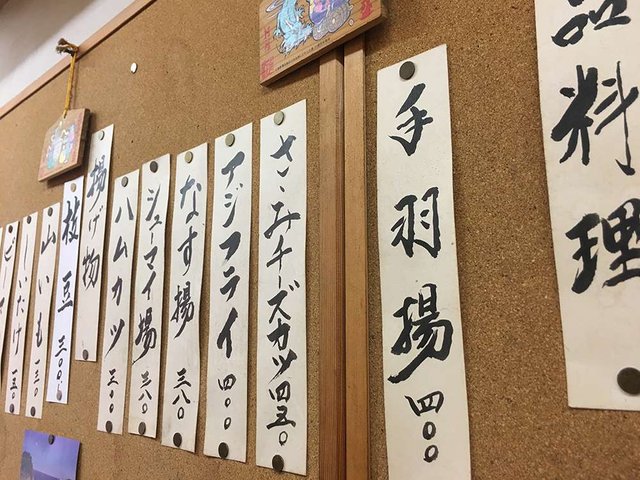 品料理
手羽揚 四〇〇
ささみチーズカツ 四五〇
アジフライ 四〇〇
なす揚 三八〇
シューマイ揚 三八〇
ハムカツ 三〇〇
揚げ物
枝豆 三〇〇
山いも 一三〇
しいたけ 一五〇